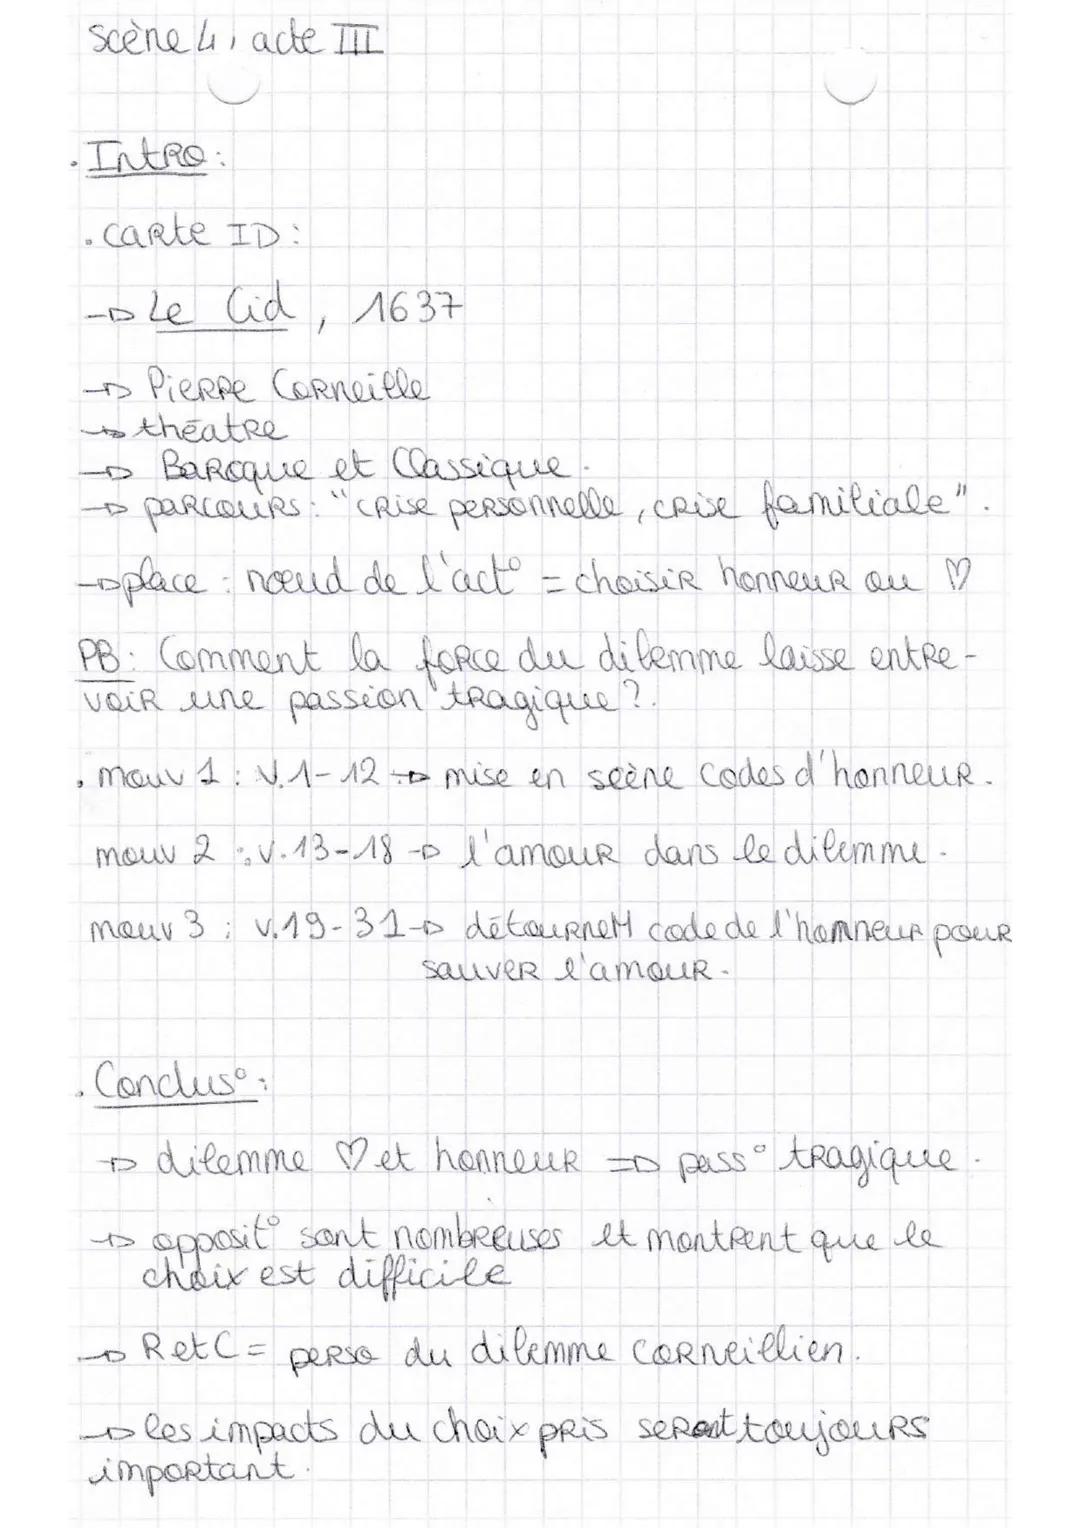 Scène 4, acte III
. Intro :
. carte ID :
→ Le Cid, 1637
→ Pierre Corneille
→ théatre
→ Baroque et Classique.
→ parcours : "crise personnelle, crise familiale".
→ place : nœud de l'act° = choisir honneur ou ♡
PB : Comment la force du dilemme laisse entre-
voir une passion tragique ?.
. mouv 1 : v.1-12 → mise en scène codes d'honneur.
mouv 2 : v.13-18 → l'amour dans le dilemme.
mouv 3 : v.19-31 → détourneM code de l'honneur pour
sauver l'amour.
. Conclus° :
→ dilemme ♡ et honneur ⇒ pass° tragique.
→ opposit° sont nombreuses et montrent que le
choix est difficile
→ R et C = perso du dilemme corneillien.
→ les impacts du choix pris seront toujours
important.